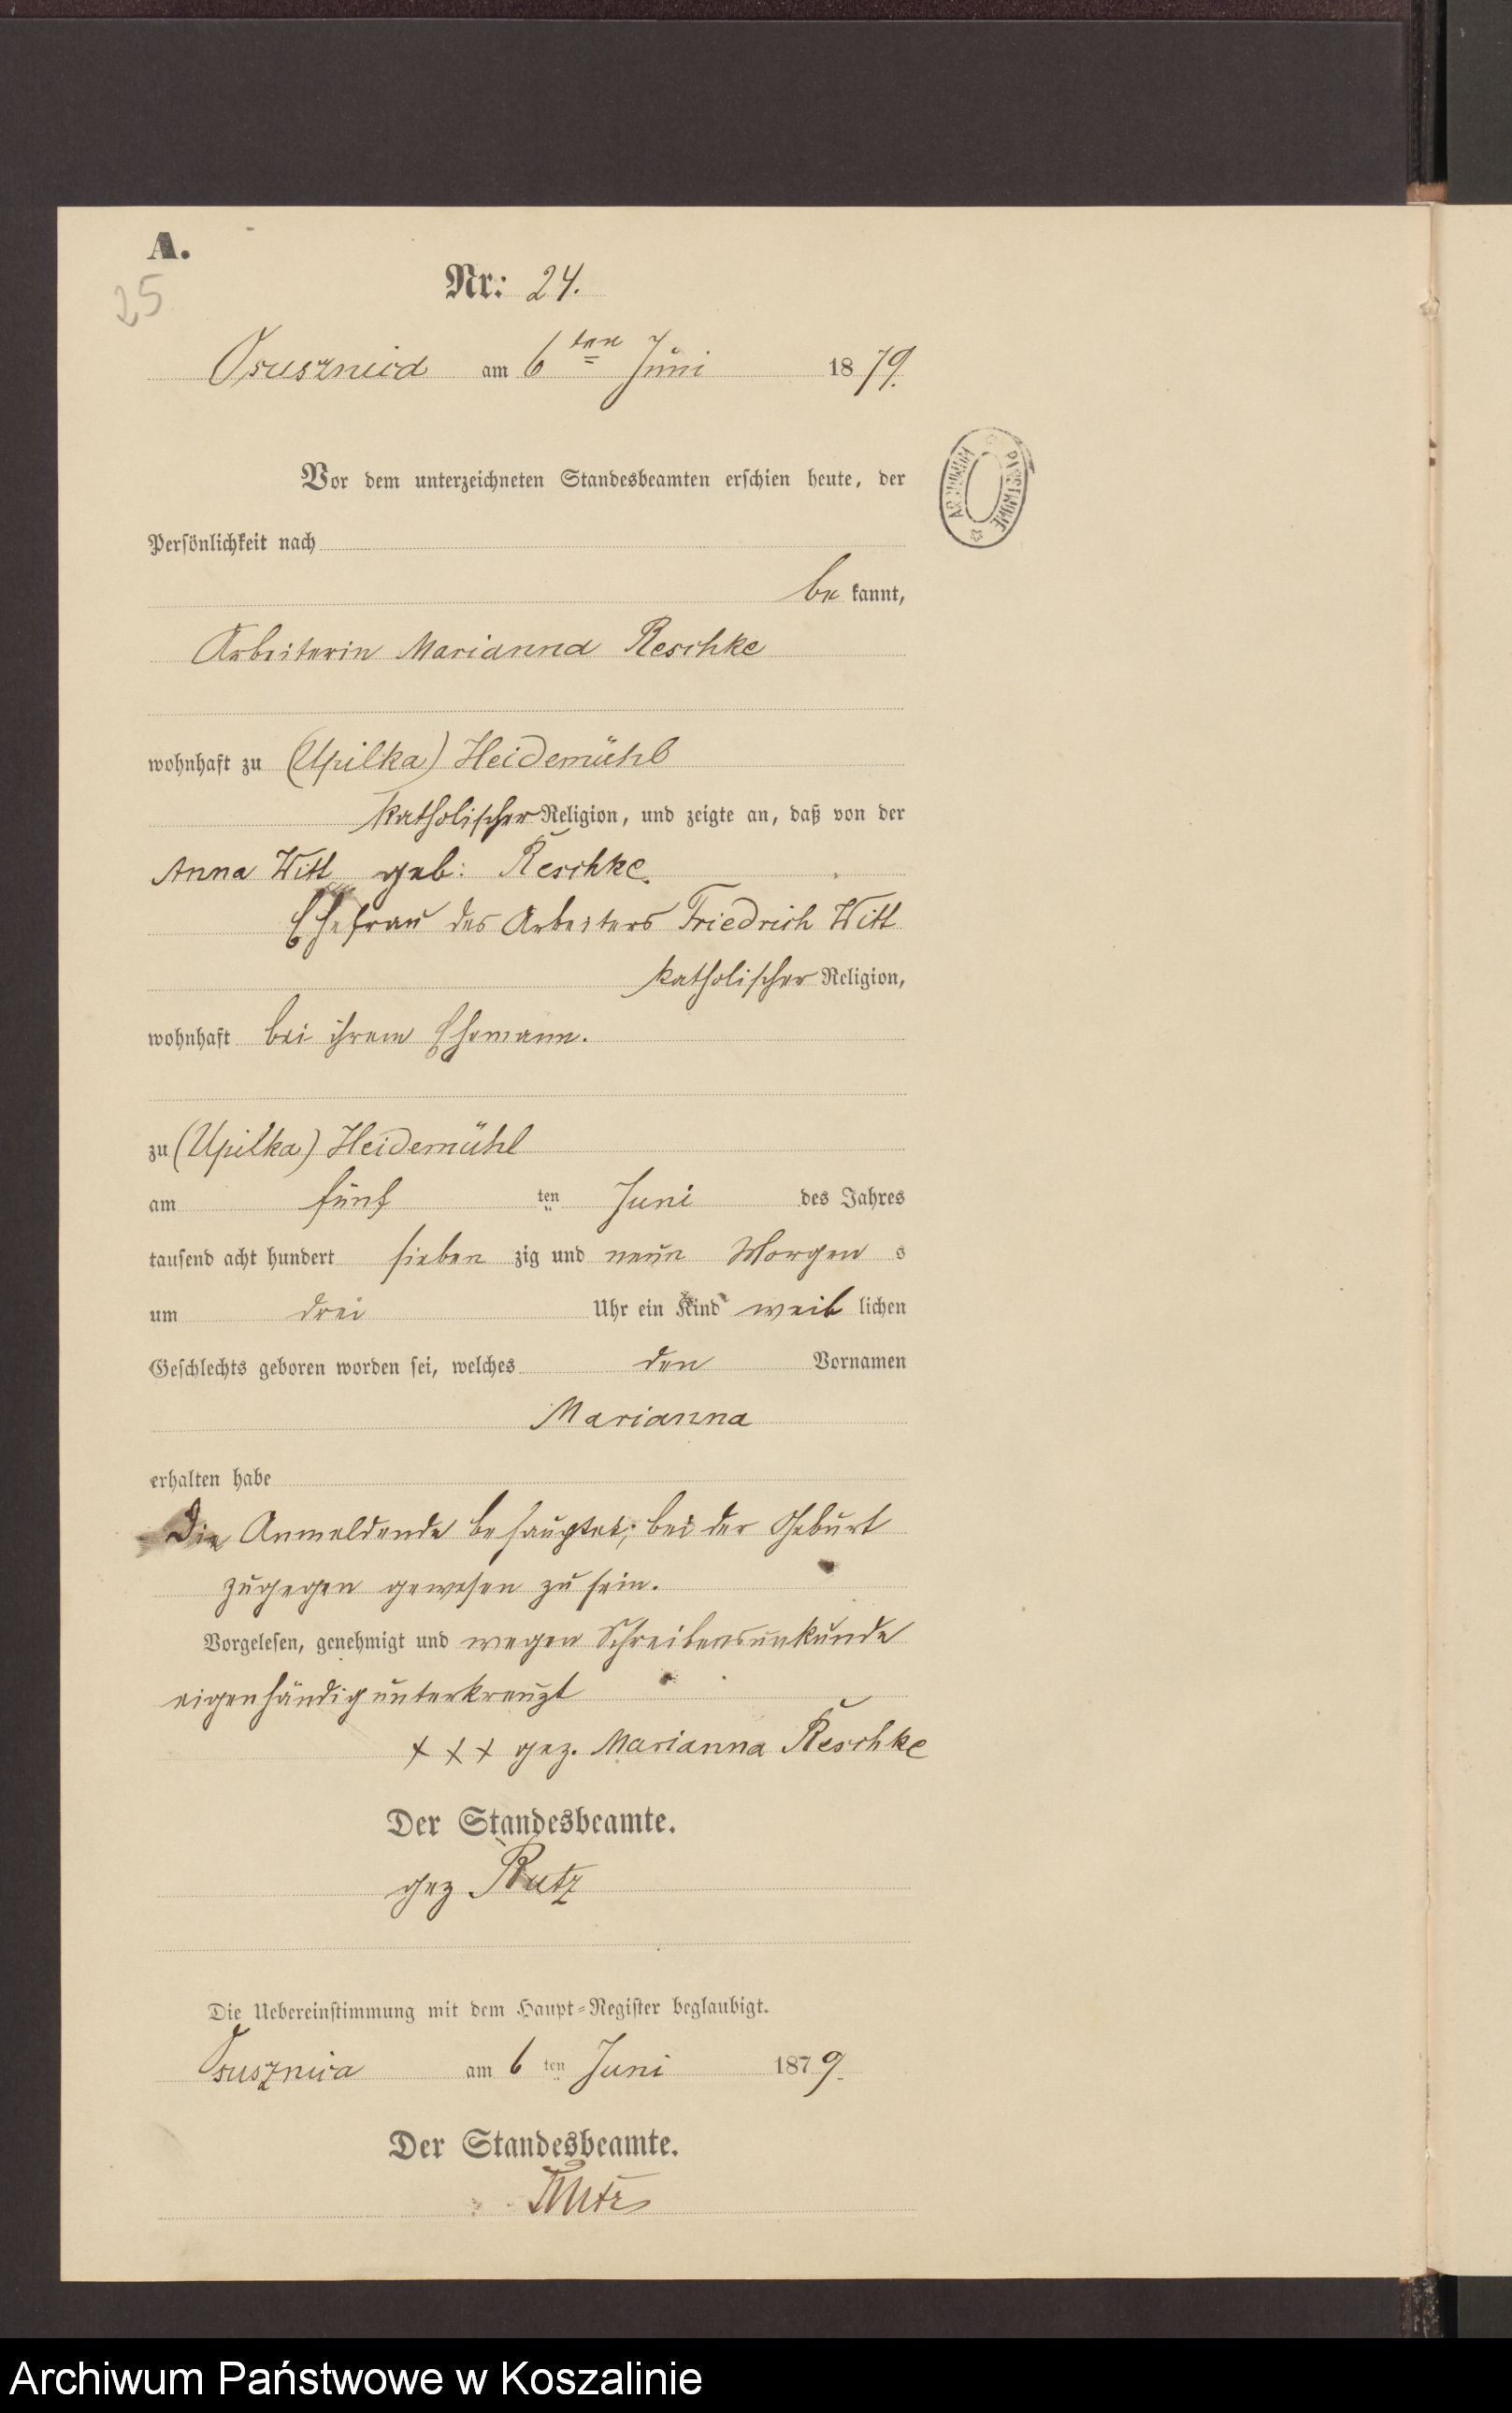 A.
25
Nr: 24.
Osusznica am 6ten Juni 1879.
Vor dem unterzeichneten Standesbeamten erschien heute, der
Persönlichkeit nach
be kannt,
Arbeiterin Marianna Reschke
wohnhaft zu (Upilka) Heidemühl
katholischer Religion, und zeigte an, daß von der
Anna Witt geb: Reschke.
Ehefrau des Arbeiters Friedrich Witt
katholischer Religion,
wohnhaft bei ihrem Ehemann.
zu (Upilka) Heidemühl
am fünf ten Juni des Jahres
tausend acht hundert sieben zig und neun Morgen s
um drei Uhr ein Kind weib lichen
Geschlechts geboren worden sei, welches den Vornamen
Marianna
erhalten habe
Die Anmeldende behauptet, bei der Geburt
zugegen gewesen zu sein.
Vorgelesen, genehmigt und wegen Schreibensunkunde
eigenhändig unterkreuzt
+ + + gez. Marianna Reschke
Der Standesbeamte.
gez Rutz
Die Uebereinstimmung mit dem Haupt=Register beglaubigt.
Osusznica am 6 ten Juni 1879.
Der Standesbeamte.
Rutz
ARCHIWUM PAŃSTWOWE
Archiwum Państwowe w Koszalinie